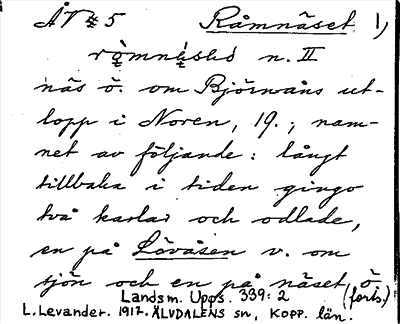 ÅV 5 Råmnäset 1)
n. II
näs ö. om Björnåns ut-
lopp i Noren, 19.; nam-
net av följande: långt
tillbaka i tiden gingo
två karlar och odlade,
en på Lövåsen v. om
sjön och en på näset ö.
(forts.)
Landsm. Upps. 339:2
L. Levander. 1917. ÄLVDALENS sn, KOPP. län.